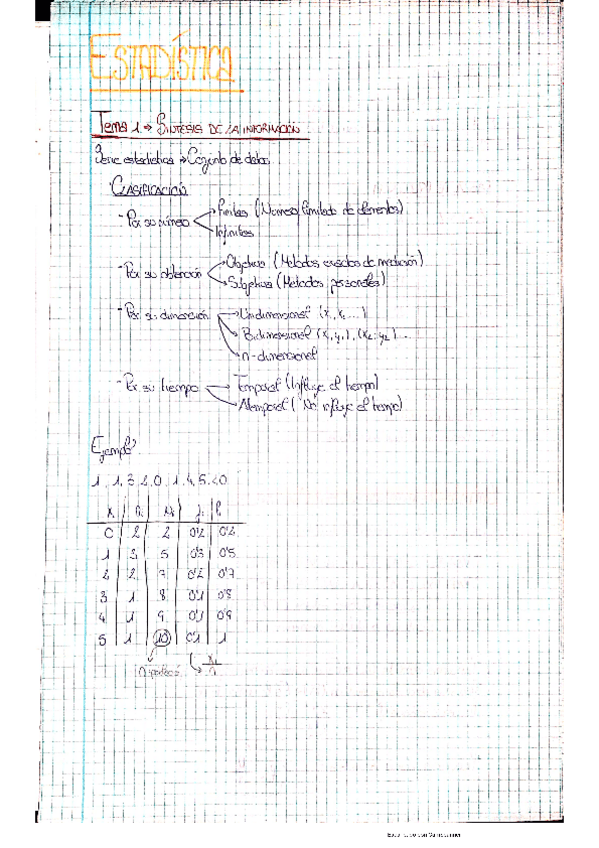 ESTADÍSTICA
Tema 1 → SÍNTESIS DE LA INFORMACIÓN
Serie estadística → Conjunto de datos
CLASIFICACIÓN
- Por su número → Finitas (Número limitado de elementos)
→ Infinitas
- Por su obtención → Objetiva (Metodos exactos de medición)
→ Subjetiva (Metodos personales)
- Por su dimensión → Unidimensional (x, x, ...)
→ Bidimensional (x, y,), (x2, y2) ...
→ n-dimensional
- Por su tiempo → Temporal (Influye el tiempo)
→ Atemporal (No influye el tiempo)
Ejemplo:
1, 1, 3, 2, 0, 1, 4, 5, 2, 0
0 | 2 | 2 | 0'2 | 0'2
1 | 3 | 5 | 0'3 | 0'5
2 | 2 | 7 | 0'2 | 0'7
3 | 1 | 8 | 0'1 | 0'8
4 | 1 | 9 | 0'1 | 0'9
5 | 1 | 10 | 0'1 | 1